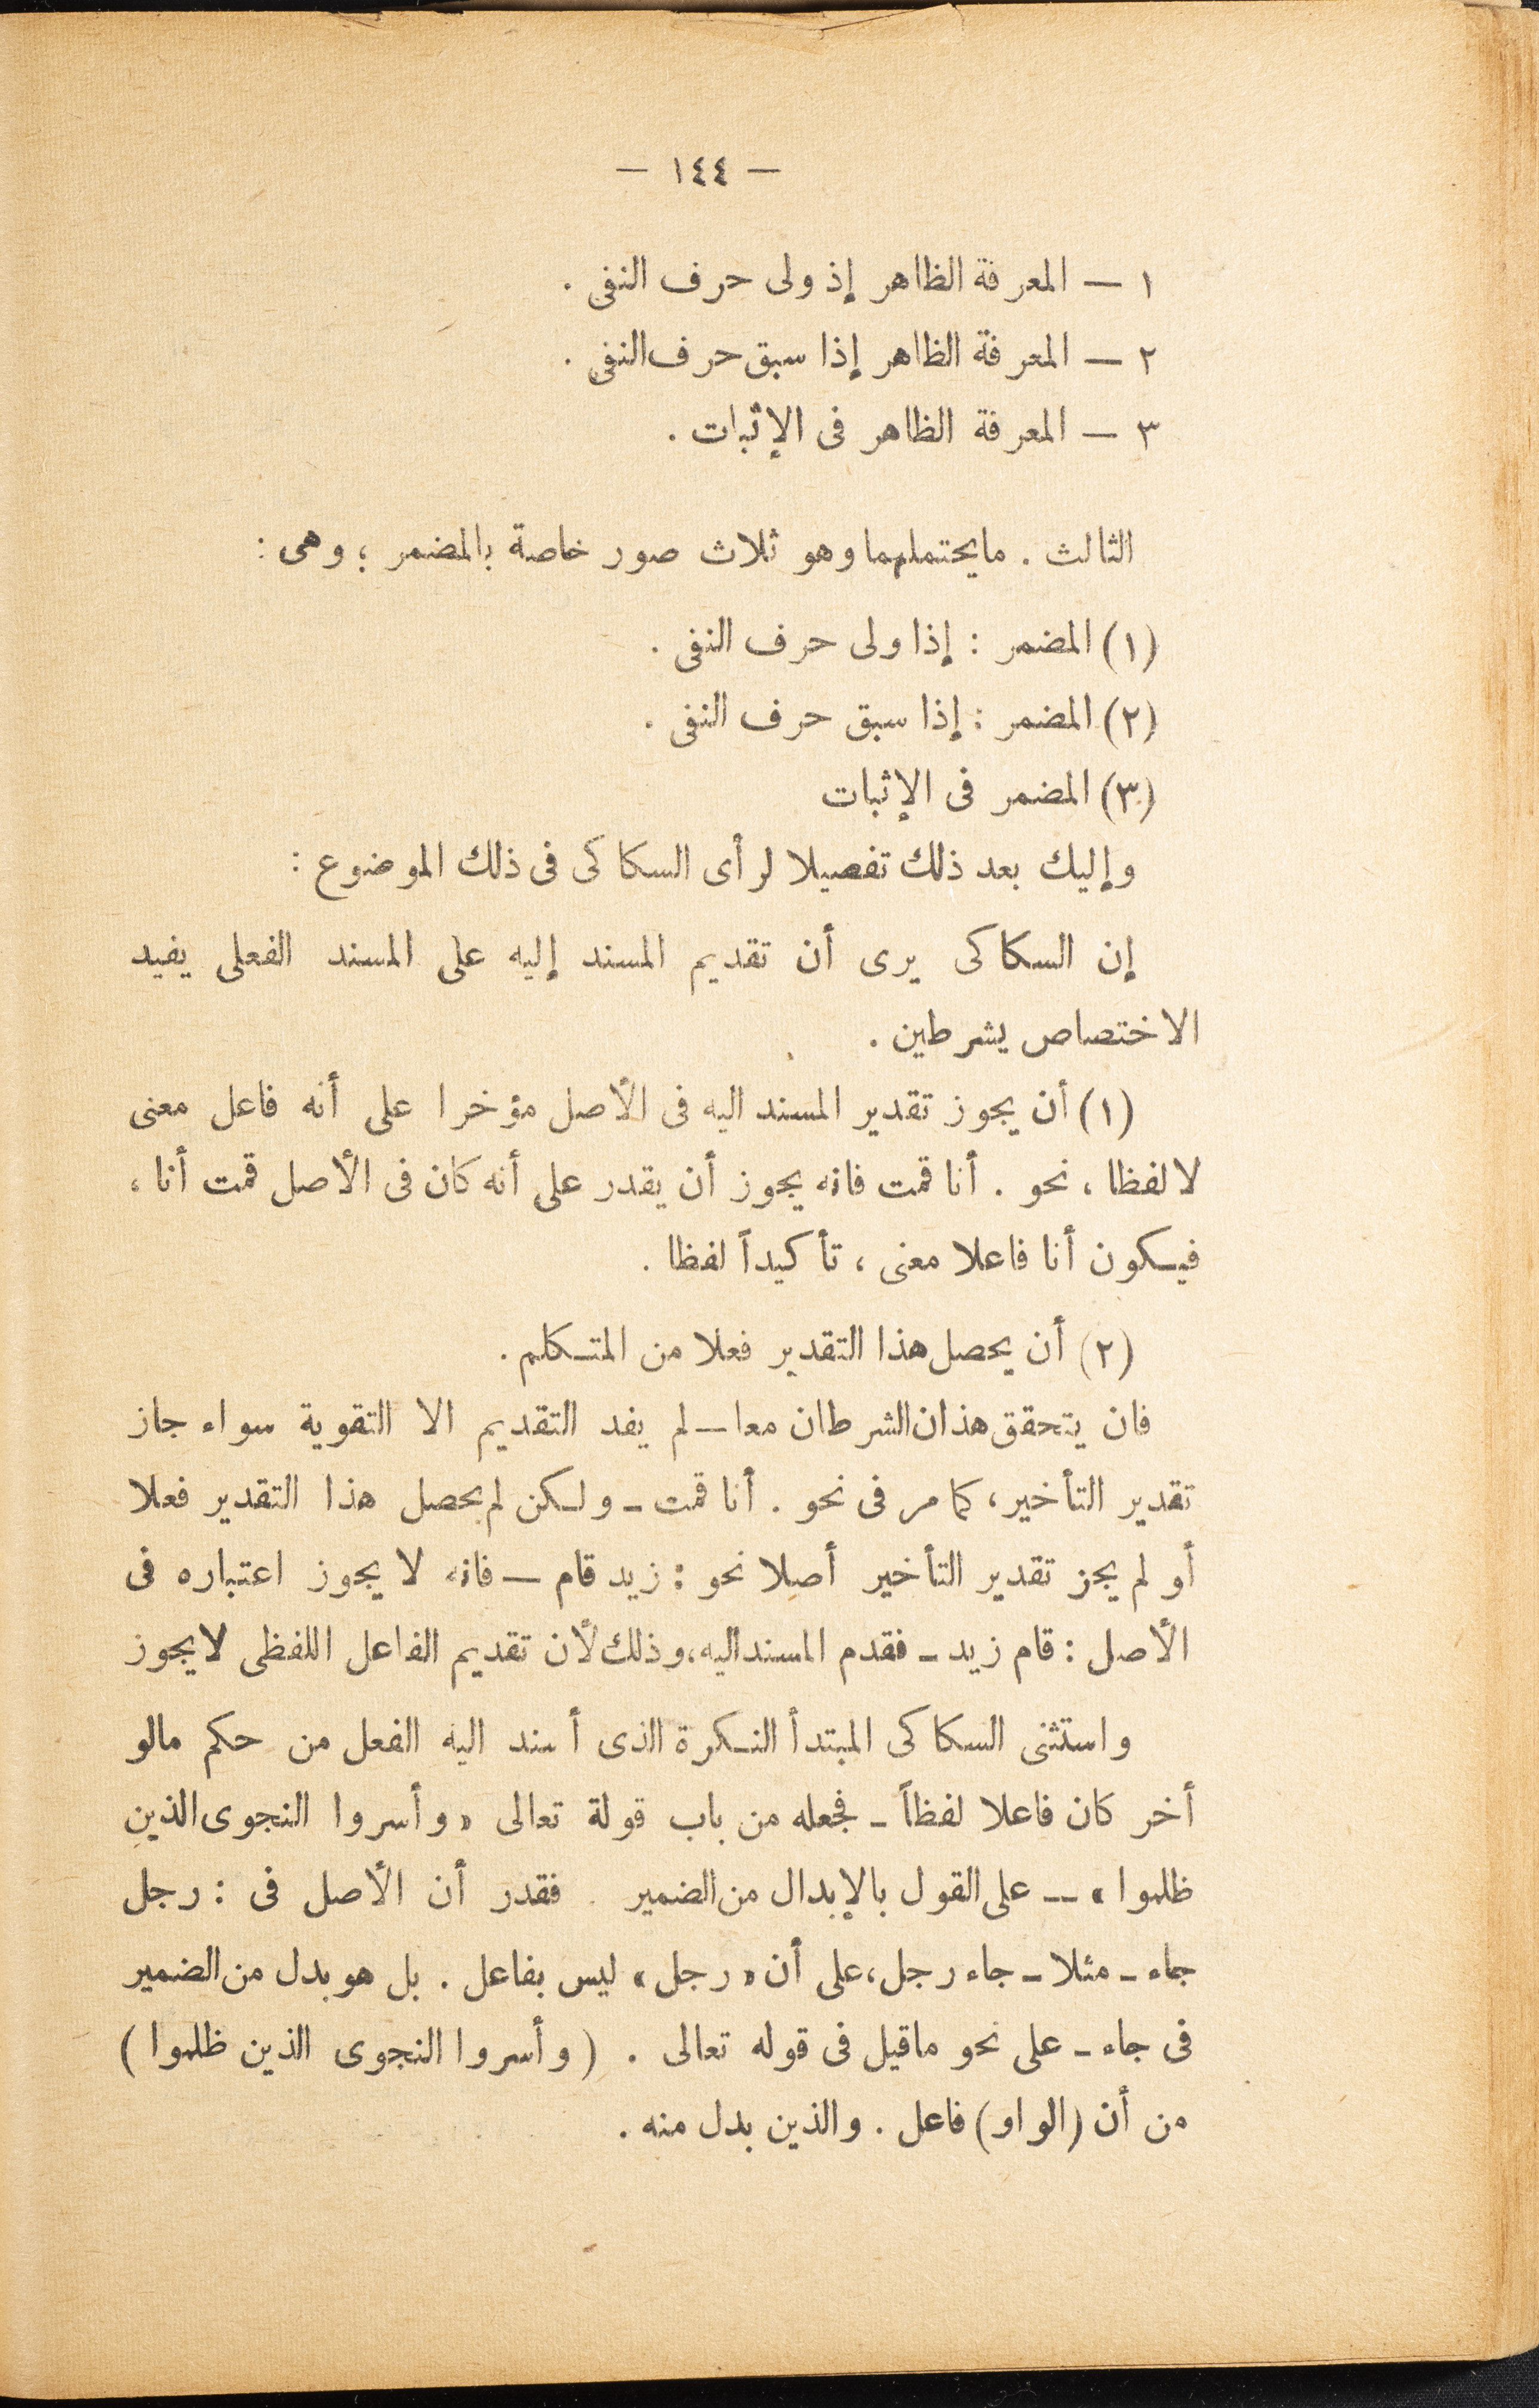 — ١٤٤ —
١ — المعرفة الظاهر إذ ولى حرف النفى .
٢ — المعرفة الظاهر إذا سبق حرف النفى .
٣ — المعرفة الظاهر فى الإثبات .
الثالث . مايحتملهما وهو ثلاث صور خاصة بالمضمر ؛ وهى :
(١) المضمر : إذا ولى حرف النفى .
(٢) المضمر : إذا سبق حرف النفى .
(٣) المضمر فى الإثبات
وإليك بعد ذلك تفصيلا لرأى السكاكى فى ذلك الموضوع :
إن السكاكى يرى أن تقديم المسند إليه على المسند الفعلى يفيد
الاختصاص يشرطين .
(١) أن يجوز تقدير المسند اليه فى الأصل مؤخرا على أنه فاعل معنى
لا لفظا ، نحو . أنا قمت فانه يجوز أن يقدر على أنه كان فى الأصل قمت أنا ،
فيكون أنا فاعلا معنى ، تأكيداً لفظا .
(٢) أن يحصل هذا التقدير فعلا من المتكلم .
فان يتحقق هذان الشرطان معا — لم يفد التقديم الا التقوية سواء جاز
تقدير التأخير ، كما مر فى نحو . أنا قمت - ولكن لم يحصل هذا التقدير فعلا
أو لم يجز تقدير التأخير أصلا نحو : زيد قام — فانه لا يجوز اعتباره فى
الأصل : قام زيد - فقدم المسنداليه ، وذلك لأن تقديم الفاعل اللفظى لايجوز
واستثنى السكاكى المبتدأ النكرة الذى أسند اليه الفعل من حكم مالو
أخر كان فاعلا لفظاً - فجعله من باب قولة تعالى « وأسروا النجوى الذين
ظلموا » — على القول بالإبدال من الضمير . فقدر أن الأصل فى : رجل
جاء - مثلا - جاء رجل ، على أن « رجل » ليس بفاعل . بل هو بدل من الضمير
فى جاء - على نحو ماقيل فى قوله تعالى . ( وأسروا النجوى الذين ظلموا )
من أن (الواو) فاعل . والذين بدل منه .